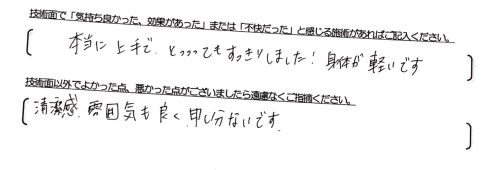 技術面で「気持ち良かった、効果があった」または「不快だった」と感じる施術があればご記入ください。
本当に上手で、とっっってもすっきりしました！身体が軽いです
技術面以外でよかった点、悪かった点がございましたら遠慮なくご指摘ください。
清潔感、雰囲気も良く、申し分ないです。